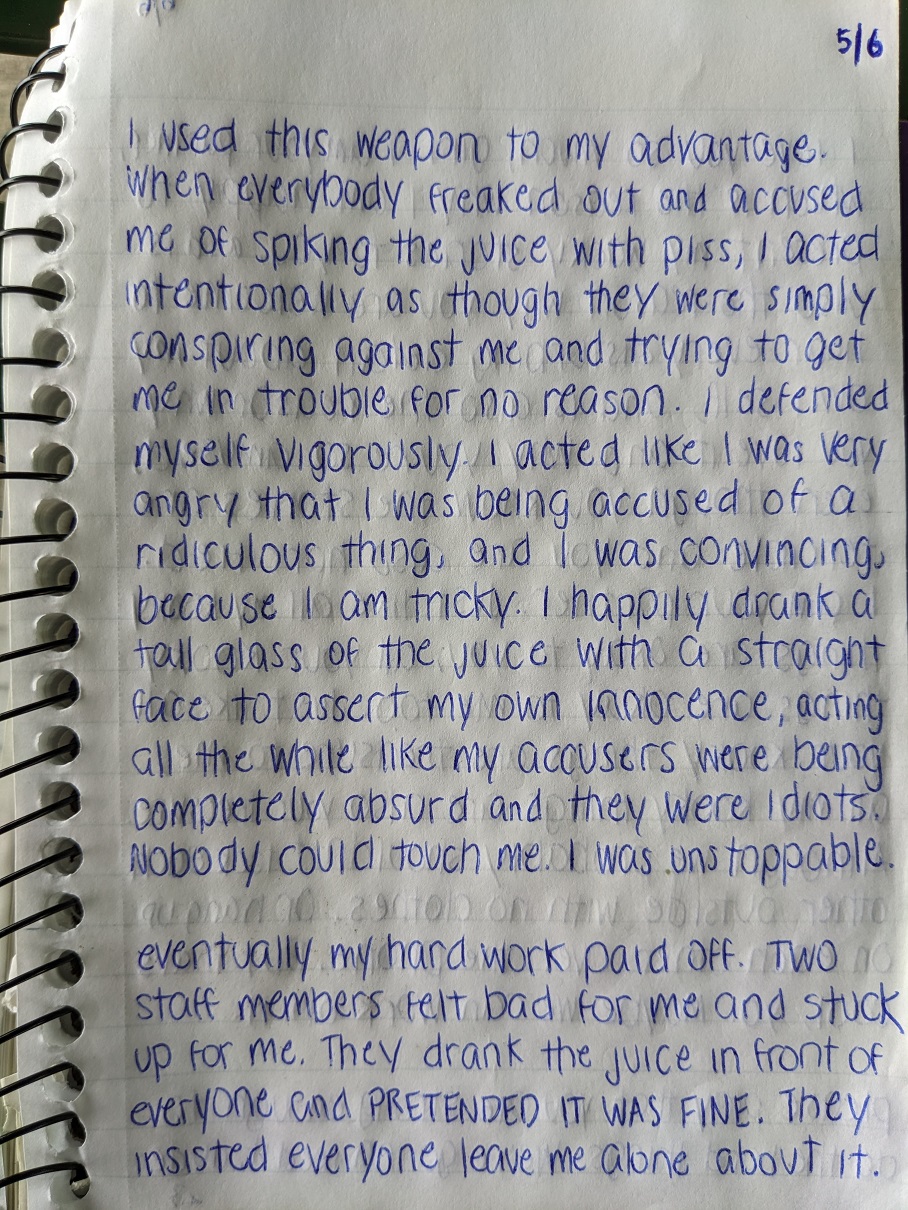 5/6
I used this weapon to my advantage.
When everybody freaked out and accused
me of spiking the juice with piss, I acted
intentionally as though they were simply
conspiring against me and trying to get
me in trouble for no reason. I defended
myself vigorously. I acted like I was very
angry that I was being accused of a
ridiculous thing, and I was convincing,
because I am tricky. I happily drank a
tall glass of the juice with a straight
face to assert my own innocence, acting
all the while like my accusers were being
completely absurd and they were idiots.
Nobody could touch me. I was unstoppable.
eventually my hard work paid off. Two
staff members felt bad for me and stuck
up for me. They drank the juice in front of
everyone and PRETENDED IT WAS FINE. They
insisted everyone leave me alone about it.